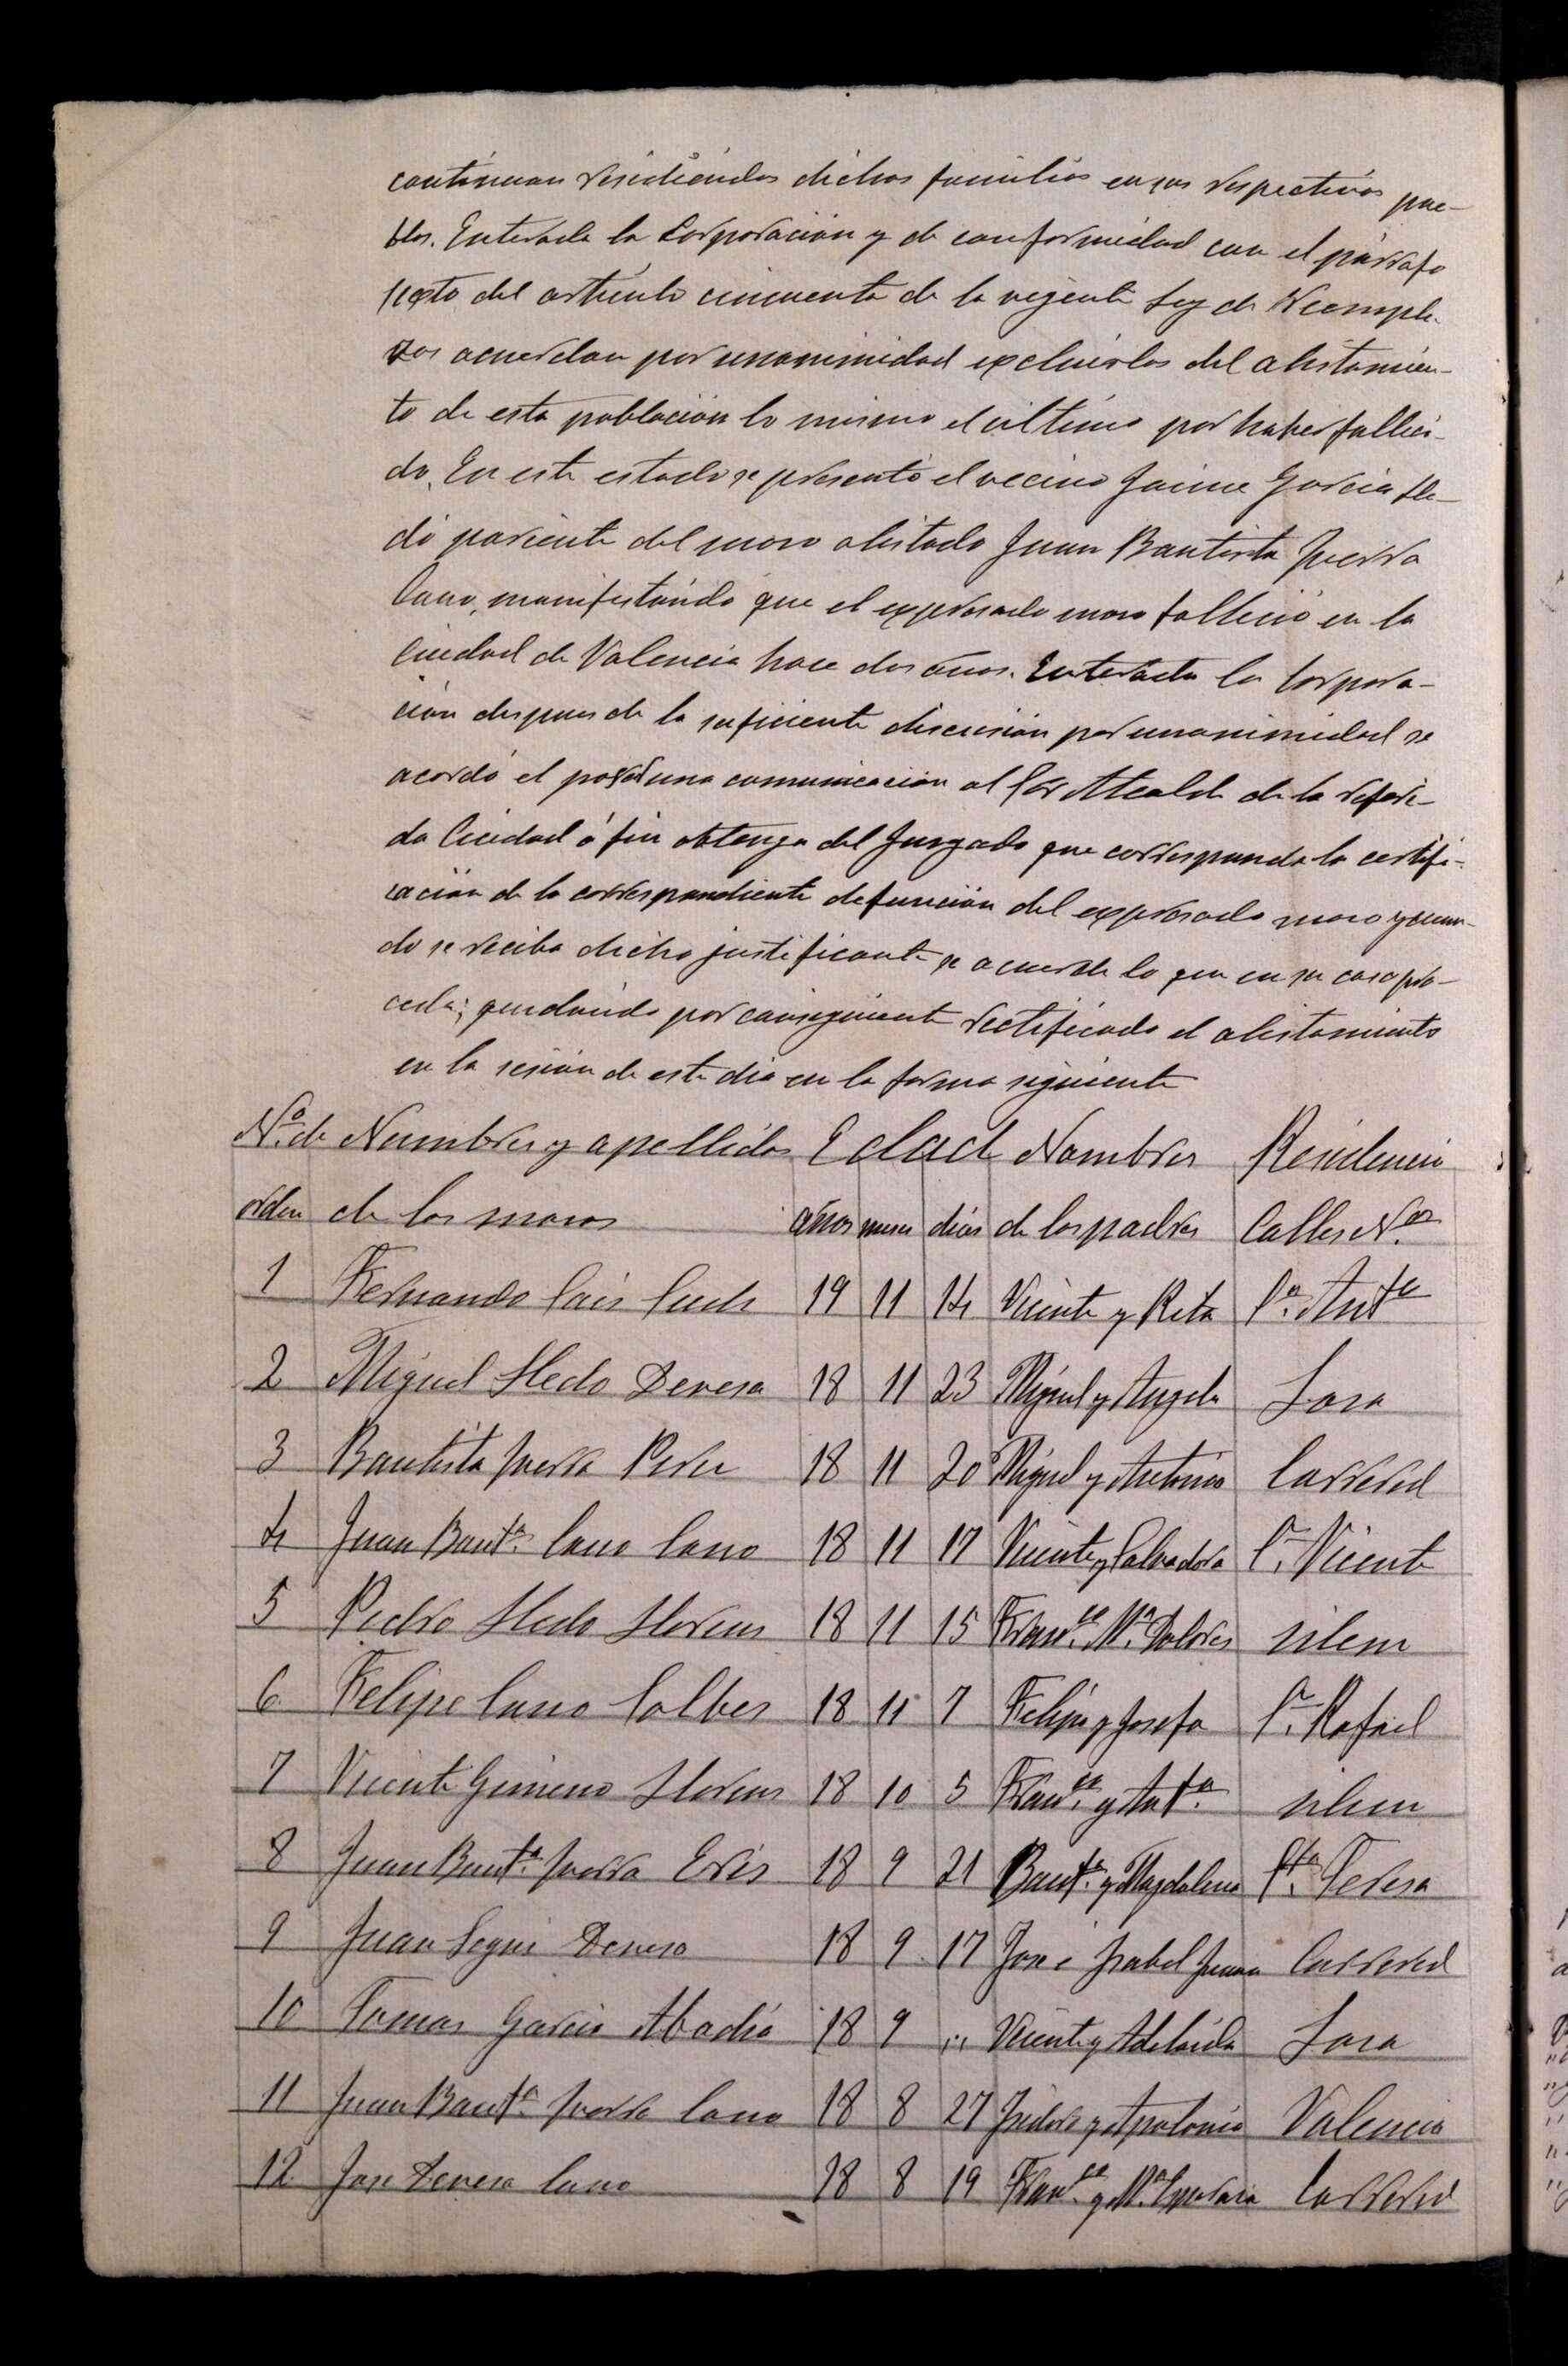 continuan residiendos dichas familias en sus respectivos pue-
blos. Enterada la Corporación y de conformidad con el párrafo
sexto del artículo cincuenta de la vigente Ley de Reempla-
zos acuerdan por unanimidad excluirlos del alistamien-
to de esta población lo mismo el último por haber falleci-
do. En este estado se presentó el vecino Jaime Garcia Lle-
dó pariente del mozo alistado Juan Bautista Yvorra
Cano, manifestándo que el expresado mozo falleció en la
Ciudad de Valencia hace dos años. Enterada la Corpora-
ción despues de la suficiente discusión por unanimidad se
acordó el pasar una comunicación al Sor Alcalde de la referi-
da Ciudad á fin obtenga del Juzgado que corresponda la certifi-
cación de la correspondiente defunción del expresado mozo y cuan-
do se reciba dicho justificante se acuerde lo que en su caso pro-
ceda; quedando por consiguiente rectificado el alistamiento
en la sesión de este dia en la forma siguiente
Nº de Nombres y apellidos Edad Nombres Residencia
orden de los mozos años meses dias de los padres Calles Nos
1 Fernando 19 11 14 Vicente y Rita Sn Anta
2 Miguel Lledo Devesa 18 11 23 Miguel y Angela Losa
3 Bautista Yvorra Perez 18 11 20 Miguel y Antonia Carreret
4 Juan Bauta Cano Cano 18 11 17 Vicente y Salvadora Sn Vicente
5 Pedro Lledo Llorens 18 11 15 Franco Ma Dolores idem
6 Felipe Cano 18 11 7 Felipe y Josefa Sn Rafael
7 Vicente Gimeno Llorens 18 10 5 Franco y Anta idem
8 Juan Bauta Yvorra 18 9 21 Bauta y Magdalena Sta Teresa
9 Juan Segui Devesa 18 9 17 Jose é Isabel Juana Carreret
10 Tomas Garcia Abadía 18 9 " Vicente y Adelaida Losa
11 Juan Bauta Yvorra Cano 18 8 27 Isidora y Apolonia Valencia
12 Jose Devesa Cano 18 8 19 Franco y Ma Carreret